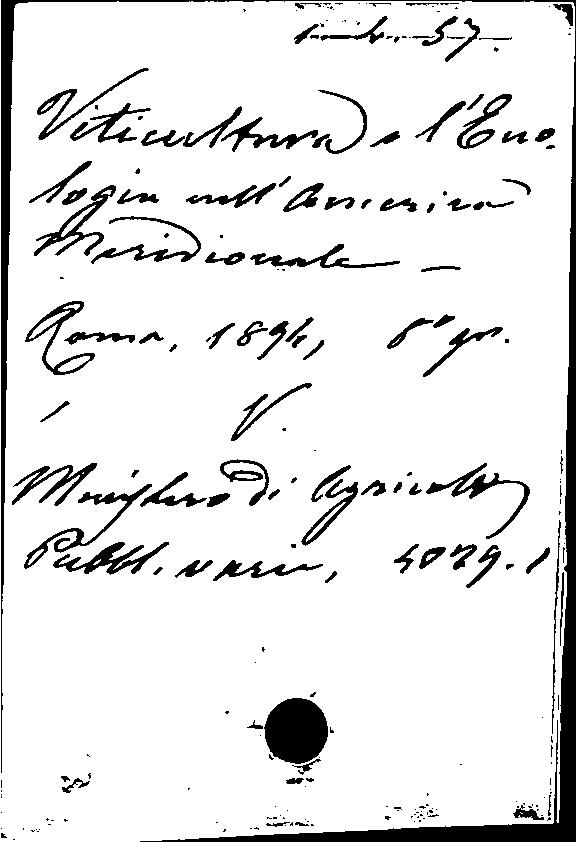 57.
Viticultura e l'Eno-
logia nell'America
Meridionale —
Roma, 1894, 8° gr.
V.
Ministero di Agricolt
Pubbl. varie, 4029.1